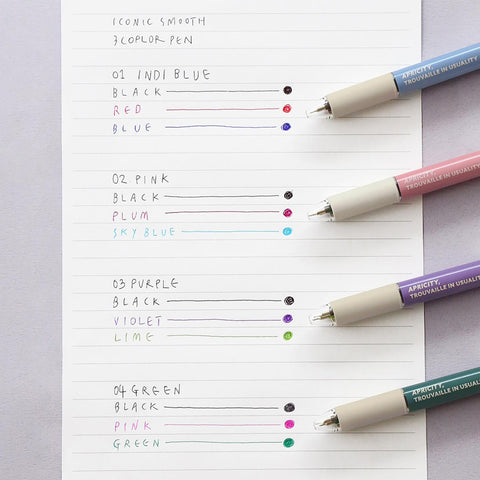 ICONIC SMOOTH
3COPLOR PEN
01 INDI BLUE
BLACK
RED
BLUE
APRICITY,
TROUVAILLE IN USUALITY
02 PINK
BLACK
PLUM
SKY BLUE
APRICITY,
TROUVAILLE IN USUALITY
03 PURPLE
BLACK
VIOLET
LIME
APRICITY,
TROUVAILLE IN USUALITY
04 GREEN
BLACK
PINK
GREEN
APRICITY,
TROUVAILLE IN USUALITY